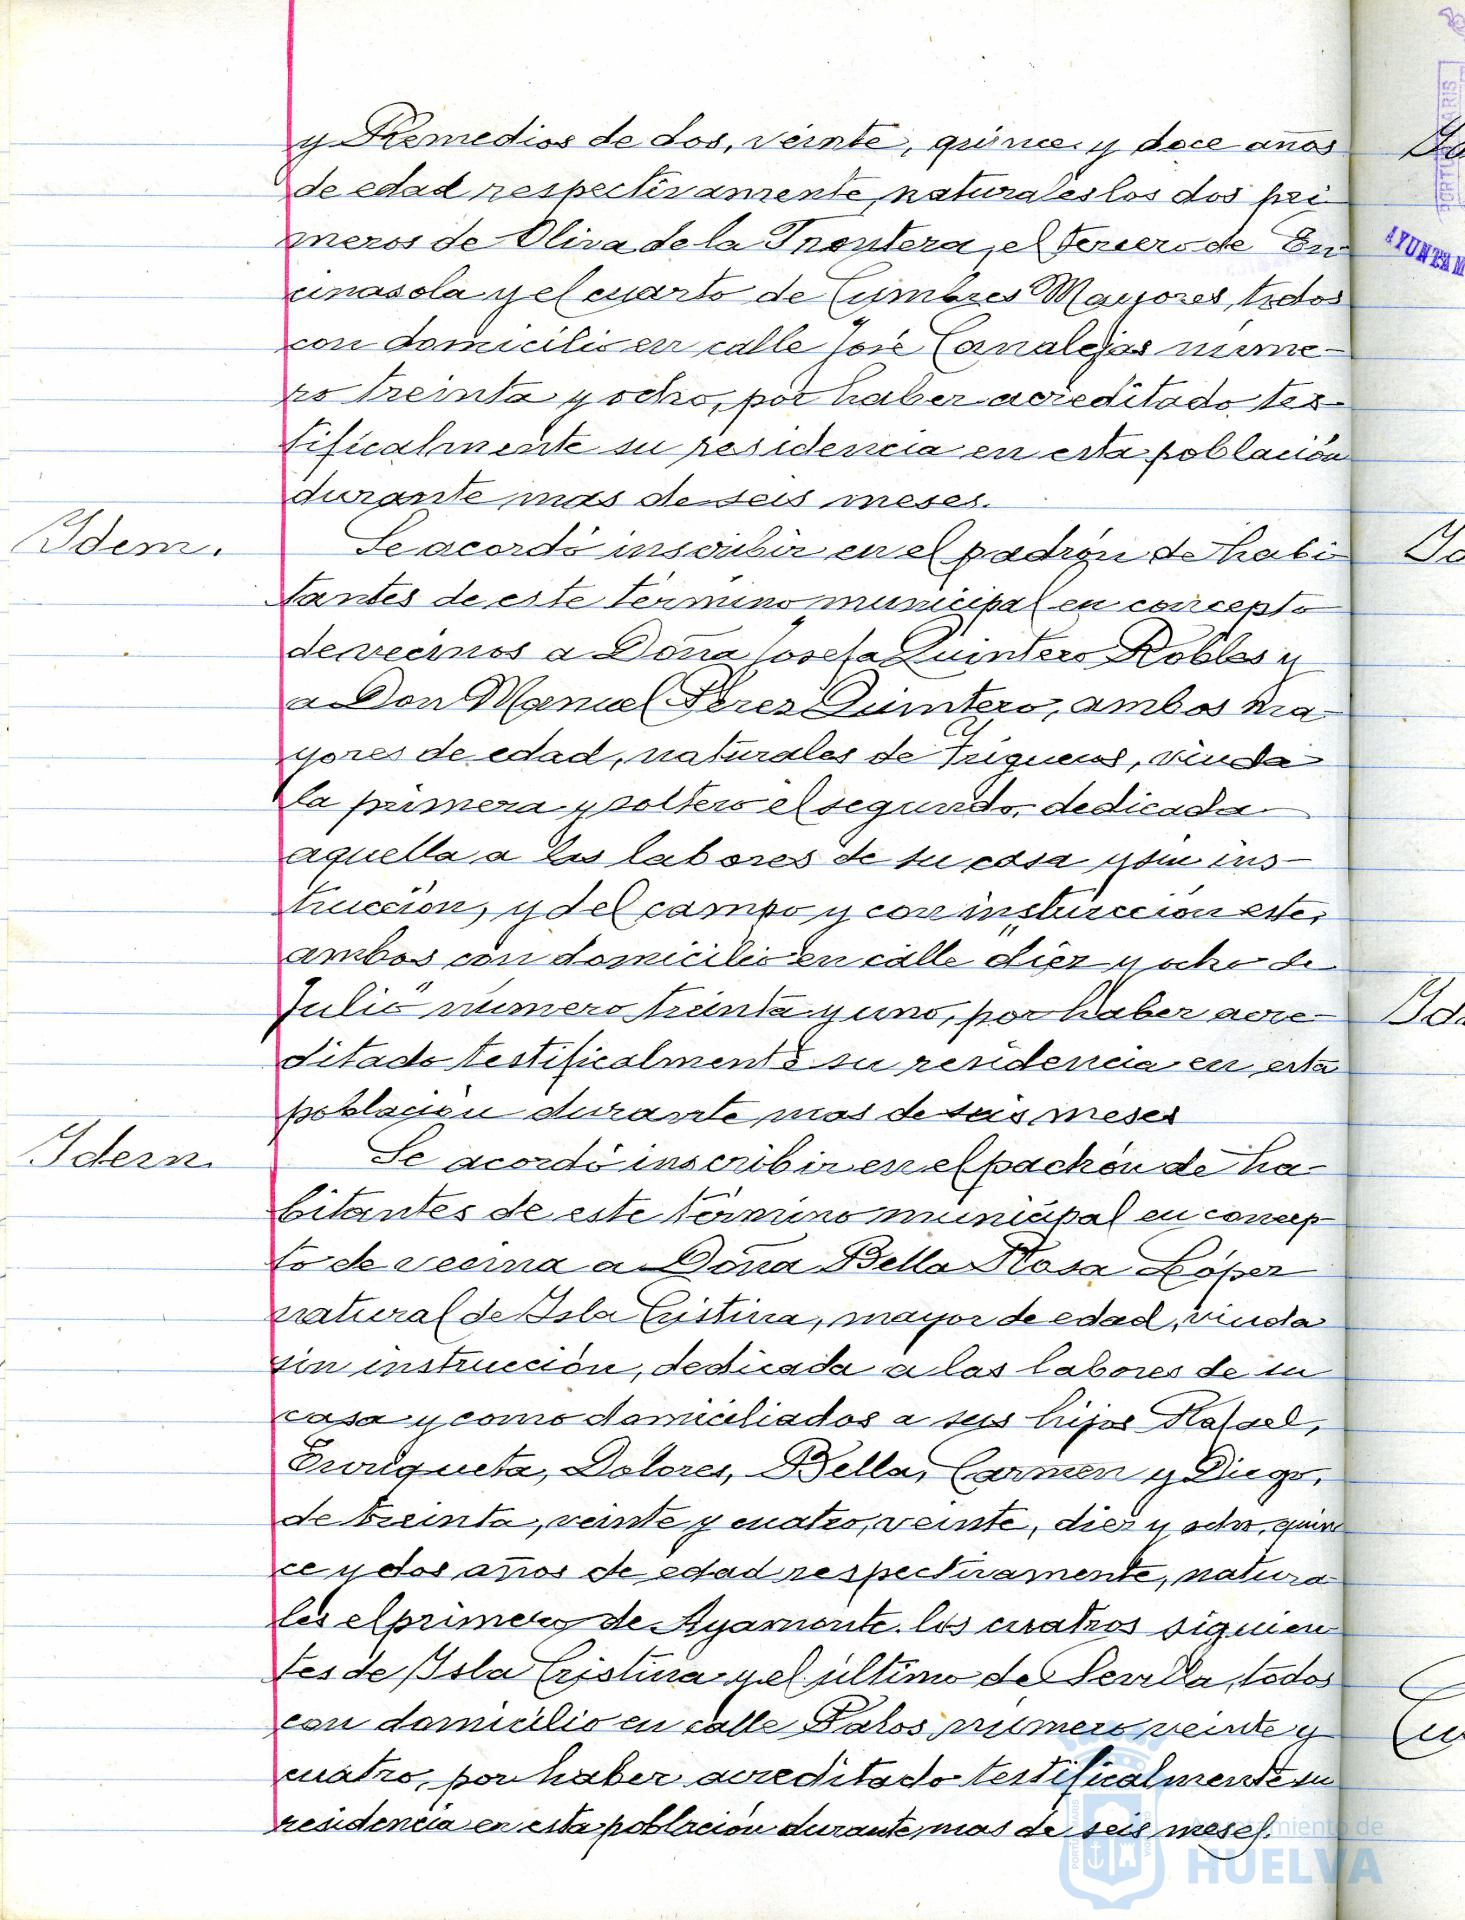 y Remedios de dos, veinte, quince y doce años
de edad respectivamente, naturales los dos pri
meros de Oliva de la Frontera, el tercero de En
cinasola y el cuarto de Cumbres Mayores, todos
con domicilio en calle José Canalejas núme-
ro treinta y ocho, por haber acreditado tes-
tificalmente su residencia en esta población
durante mas de seis meses.
Idem.
Se acordó inscribir en el padrón de habi
tantes de este término municipal en concepto
de vecinos a Doña Josefa Quintero Robles y
a Don Manuel Pérez Quintero, ambos ma-
yores de edad, naturales de Trigueros, viuda
la primera y soltero el segundo, dedicada
aquella a las labores de su casa y sin ins-
trucción, y del campo y con instrucción este,
ambos con domicilio en calle "diez y ocho de
Julio" número treinta y uno, por haber acre-
ditado testificalmente su residencia en esta
población durante mas de seis meses
Idem.
Se acordó inscribir en el padrón de ha-
bitantes de este término municipal en concep
to de vecina a Doña Bella Rosa López
natural de Isla Cristina, mayor de edad, viuda
sin instrucción, dedicada a las labores de su
casa y como domiciliados a sus hijos Rafael,
Enriqueta, Dolores, Bella, Carmen y Diego,
de treinta, veinte y cuatro, veinte, diez y ocho, quin
ce y dos años de edad respectivamente, natura
les el primero de Ayamonte, los cuatros siguien
tes de Isla Cristina y el último de Sevilla, todos
con domicilio en calle Palos número veinte y
cuatro, por haber acreditado testificalmente su
residencia en esta población durante mas de seis meses.
Ayuntamiento de
HUELVA
AYUNTAM